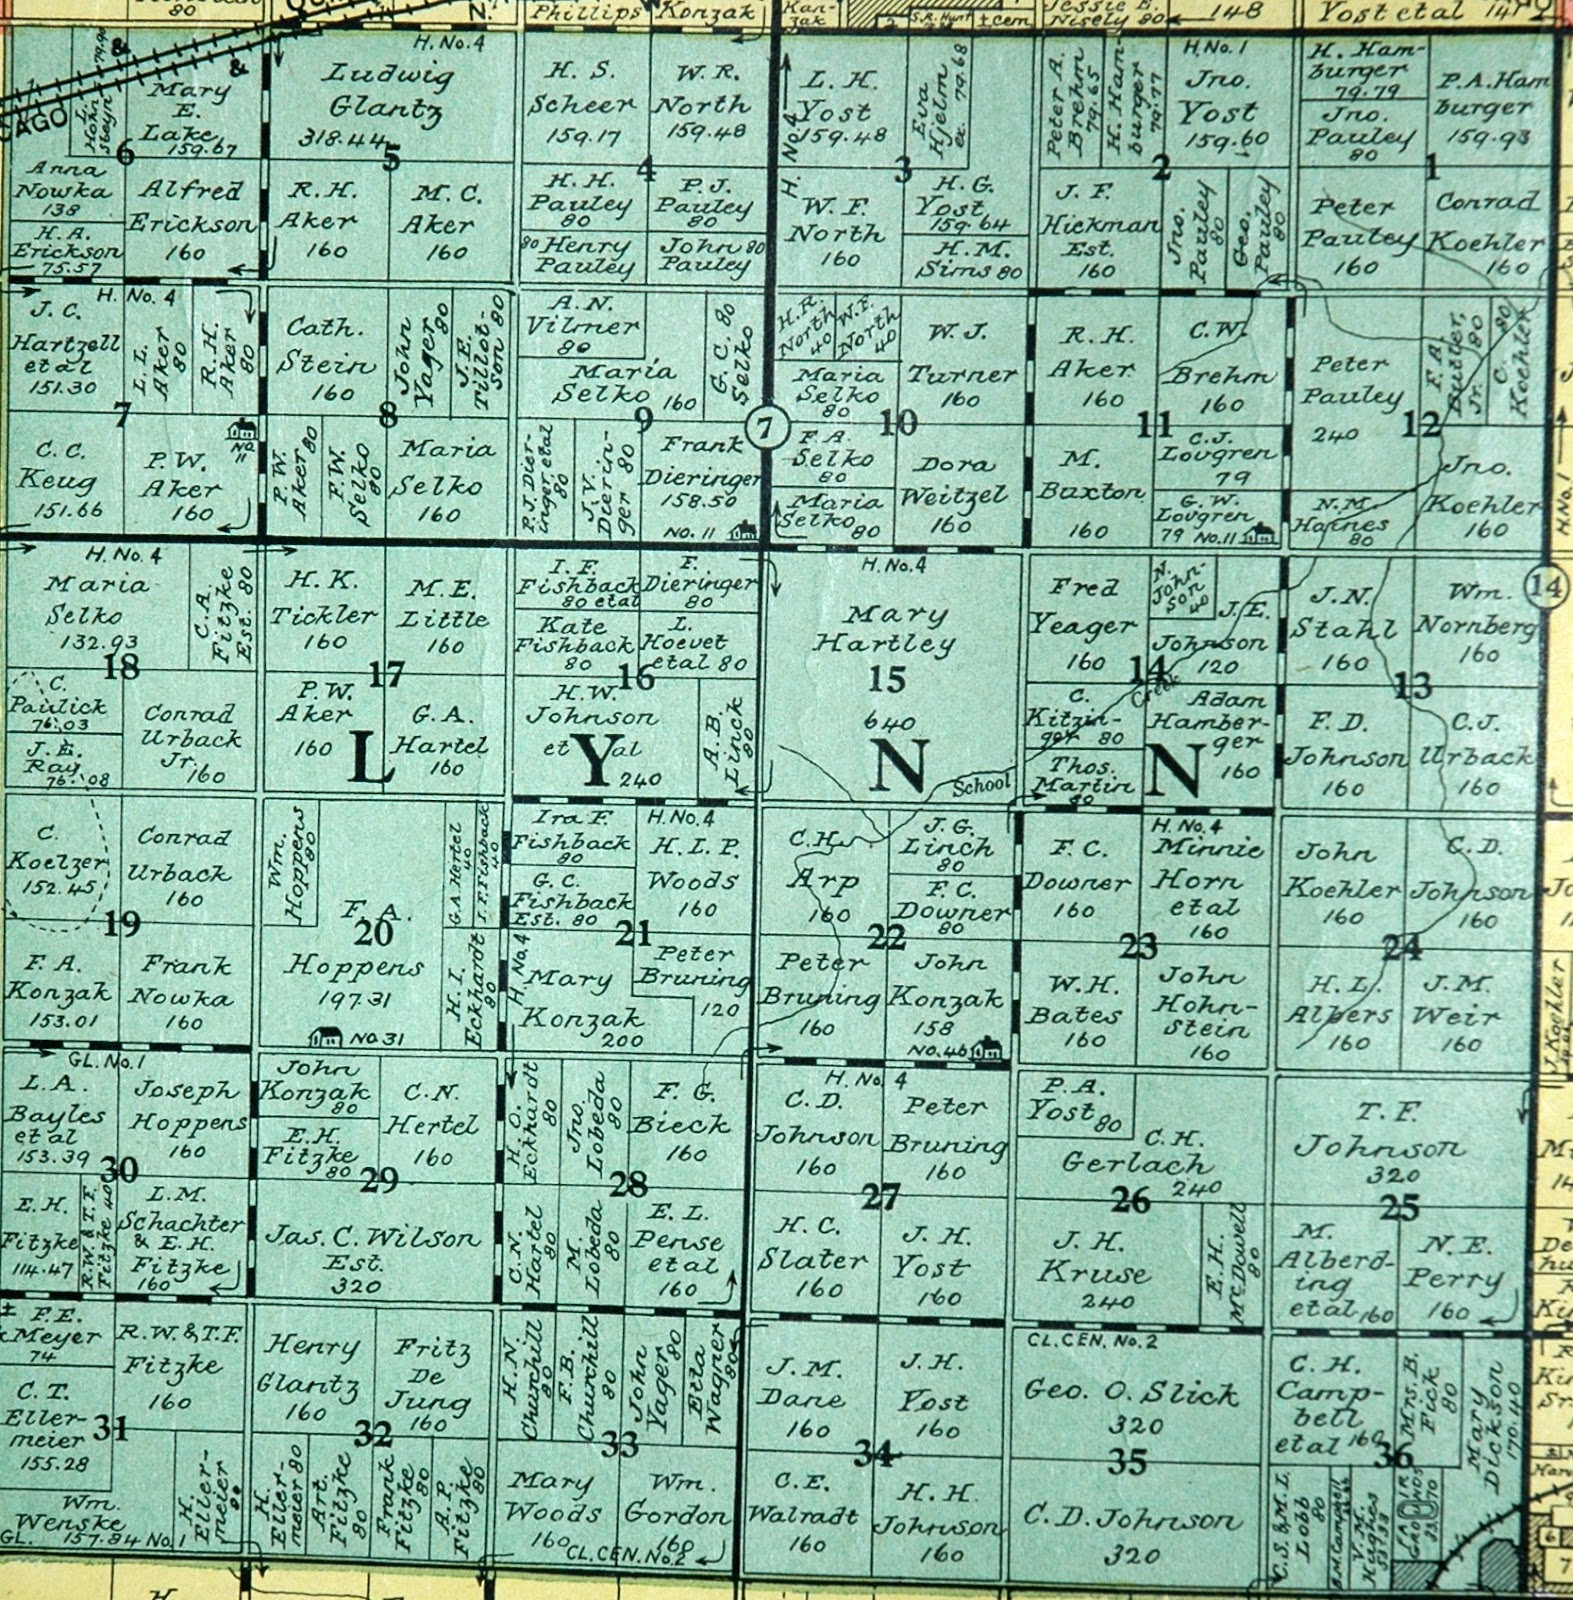 80
N.
Phillips
Konzak
Kan-
zak
S.R. Hunt
Cem
Jessie E.
Nisely 80
148
Yost et al
CAGO
&
&
Mary
E.
Lake
159.67
6
Anna
Nowka
138
H. A.
Erickson
75.57
Alfred
Erickson
160
H. No. 4
Ludwig
Glantz
318.44
5
R. H.
Aker
160
M. C.
Aker
160
H. S.
Scheer
159.17
W. R.
North
159.48
4
H. H.
Pauley
80
P. J.
Pauley
80
80 Henry
Pauley
John 80
Pauley
H. No. 4
L. H.
Yost
159.48
Eva
Hjelm
79.68
3
W. F.
North
160
H. G.
Yost
159.64
H. M.
Sims 80
Peter A.
Brehm
79.65
H. Ham-
burger
79.77
H. No. 1
Jno.
Yost
159.60
2
J. F.
Hickman
Est.
160
Jno.
Pauley
80
Geo.
Pauley
80
H. Ham-
burger
79.79
Jno.
Pauley
80
P. A. Ham
burger
159.93
1
Peter
Pauley
160
Conrad
Koehler
160
H. No. 4
J. C.
Hartzell
et al
151.30
L. L.
Aker
80
R. H.
Aker
80
7
C. C.
Keug
151.66
P. W.
Aker
160
NO.
11
Cath.
Stein
160
John
Yager
80
J. E.
Tillot-
son 80
8
P. W.
Aker 80
F. W.
Selko
80
Maria
Selko
160
A. N.
Vilmer
80
Maria
Selko 160
G. C. 80
Selko
9
P. J. Dier-
inger et al
80
J. V.
Dierin-
ger 80
Frank
Dieringer
158.50
NO. 11
7
H. R.
North
40
W. F.
North
40
Maria
Selko
80
W. J.
Turner
160
10
F. A.
Selko
80
Maria
Selko 80
Dora
Weitzel
160
R. H.
Aker
160
C. W.
Brehm
160
11
M.
Buxton
160
C. J.
Lovgren
79
G. W.
Lovgren
79 No. 11
Peter
Pauley
240
F. A.
Butler,
Jr. 80
C. 80
Koehler
12
N. M.
Haines
80
Jno.
Koehler
160
H. No. 1
14
H. No. 4
Maria
Selko
132.93
C. A.
Fitzke
Est. 80
18
C.
Paulick
76.03
J. E.
Ray
76.08
Conrad
Urback
Jr. 160
H. K.
Tickler
160
M. E.
Little
160
17
P. W.
Aker
160
G. A.
Hartel
160
I. F.
Fishback
80 et al
F.
Dieringer
80
Kate
Fishback
80
L.
Hoevet
et al 80
16
H. W.
Johnson
et al
240
A. B.
Linck
80
H. No. 4
Mary
Hartley
15
640
Fred
Yeager
160
N.
John-
son
40
J. E.
Johnson
120
14
Creek
C.
Kitzin-
ger 80
Thos.
Martin
80
Adam
Hamber-
ger
160
J. N.
Stahl
160
Wm.
Nornberg
160
13
F. D.
Johnson
160
C. J.
Urback
160
L Y N N
School
C.
Koelzer
152.45
Conrad
Urback
160
19
F. A.
Konzak
153.01
Frank
Nowka
160
Wm.
Hoppens
80
G. A. Hertel
40
I. F. Fishback
40
F. A.
20
Hoppens
197.31
H. I.
Eckhardt
80
NO. 31
Ira F.
Fishback
80
H. No. 4
H. I. P.
Woods
160
G. C.
Fishback
Est. 80
21
H. No. 4
Mary
Konzak
200
Peter
Bruning
120
C. H.
Arp
160
J. G.
Linch
80
F. C.
Downer
80
22
Peter
Bruning
160
John
Konzak
158
No. 46
F. C.
Downer
160
H. No. 4
Minnie
Horn
et al
160
23
W. H.
Bates
160
John
Hohn-
stein
160
John
Koehler
160
C. D.
Johnson
160
24
H. L.
Albers
160
J. M.
Weir
160
J. Koehler
GL. No. 1
L. A.
Bayles
et al
153.39
Joseph
Hoppens
160
30
E. H.
Fitzke
114.47
R.W. & T.F.
Fitzke 40
L. M.
Schachter
& E. H.
Fitzke
160
John
Konzak
80
E. H.
Fitzke
80
C. N.
Hertel
160
29
Jas. C. Wilson
Est.
320
H. O.
Eckhardt
80
Jno.
Lobeda
80
F. G.
Bieck
160
28
C. N.
Hartel
80
M.
Lobeda
80
E. L.
Pense
et al
160
H. No. 4
C. D.
Johnson
160
Peter
Bruning
160
27
H. C.
Slater
160
J. H.
Yost
160
P. A.
Yost 80
C. H.
Gerlach
240
26
J. H.
Kruse
240
E. H.
McDowell
80
T. F.
Johnson
320
25
M.
Alberd-
ing
et al 160
N. E.
Perry
160
F. E.
Meyer
74
R. W. & T. F.
Fitzke
160
C. T.
Eller-
meier
155.28
31
Wm.
Wenske
GL. 157.84 No. 1
H.
Eller-
meier
80
Henry
Glantz
160
Fritz
De
Jung
160
32
H.
Eller-
meier 80
Art.
Fitzke
80
Frank
Fitzke
80
A. P.
Fitzke
80
H. N.
Churchill
80
F. B.
Churchill
80
John
Yager
80
Etta
Wagner
80
33
Mary
Woods
160
Wm.
Gordon
160
CL. CEN. No. 2
J. M.
Dane
160
J. H.
Yost
160
34
C. E.
Walradt
160
H. H.
Johnson
160
CL. CEN. No. 2
Geo. O. Slick
320
35
C. D. Johnson
320
C. H.
Camp-
bell
et al 160
Mrs. B.
Fick
80
Mary
Dickson
170.40
36
C. S. & M. L.
Lobb
80
V. M.
Hughes